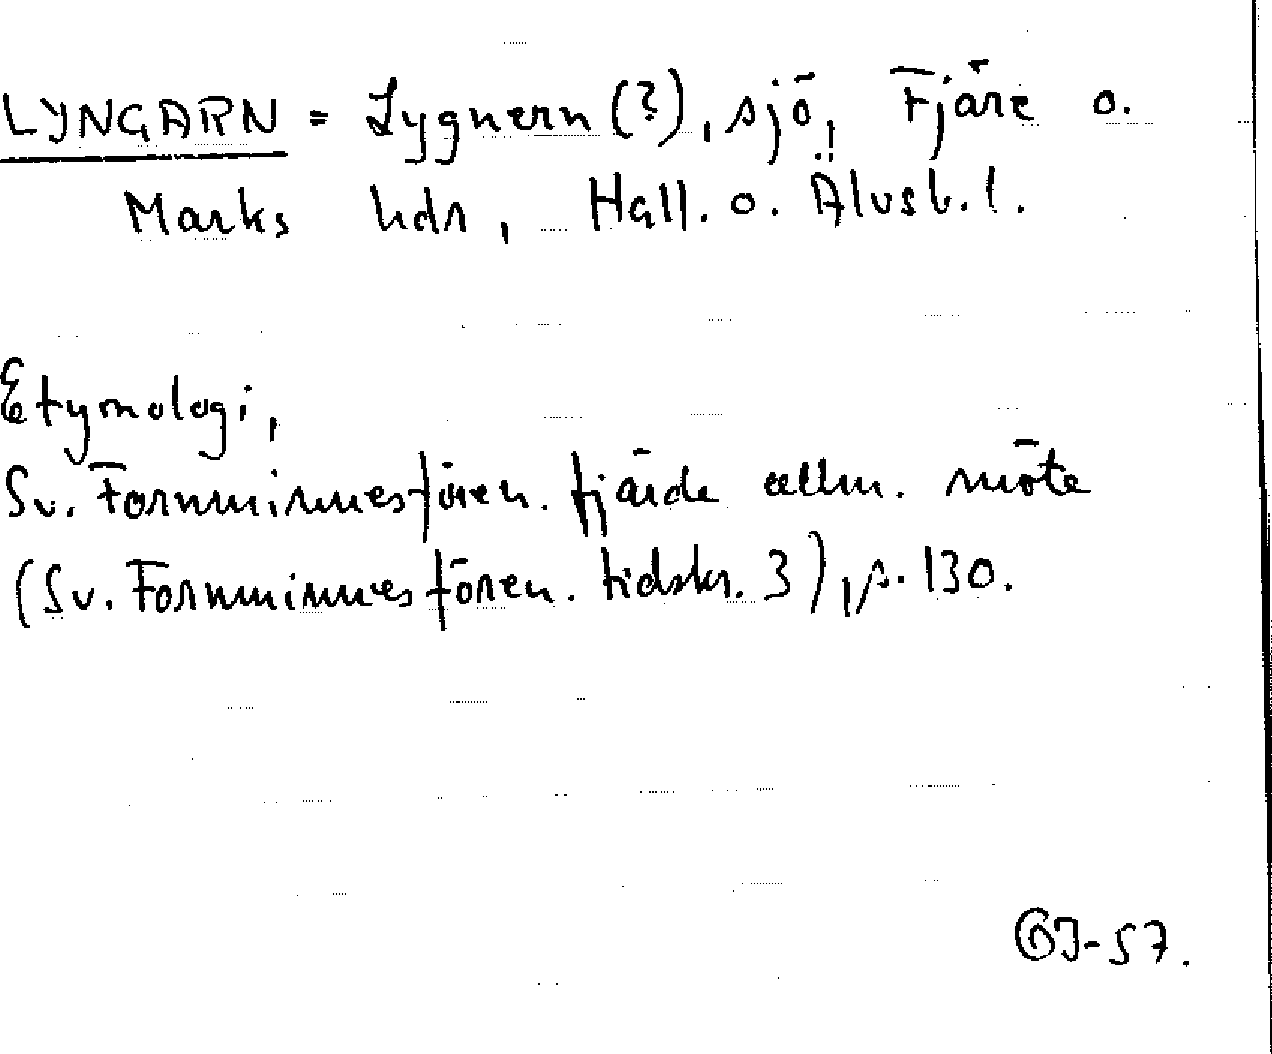 LYNGARN = Lygnern (?), sjö, Fjäre o.
Marks hdr, Hall. o. Älvsb. l.
Etymologi,
Sv. Fornminnesfören. fjärde allm. möte
(Sv. Fornminnesfören. tidskr. 3), s. 130.
GJ-57.